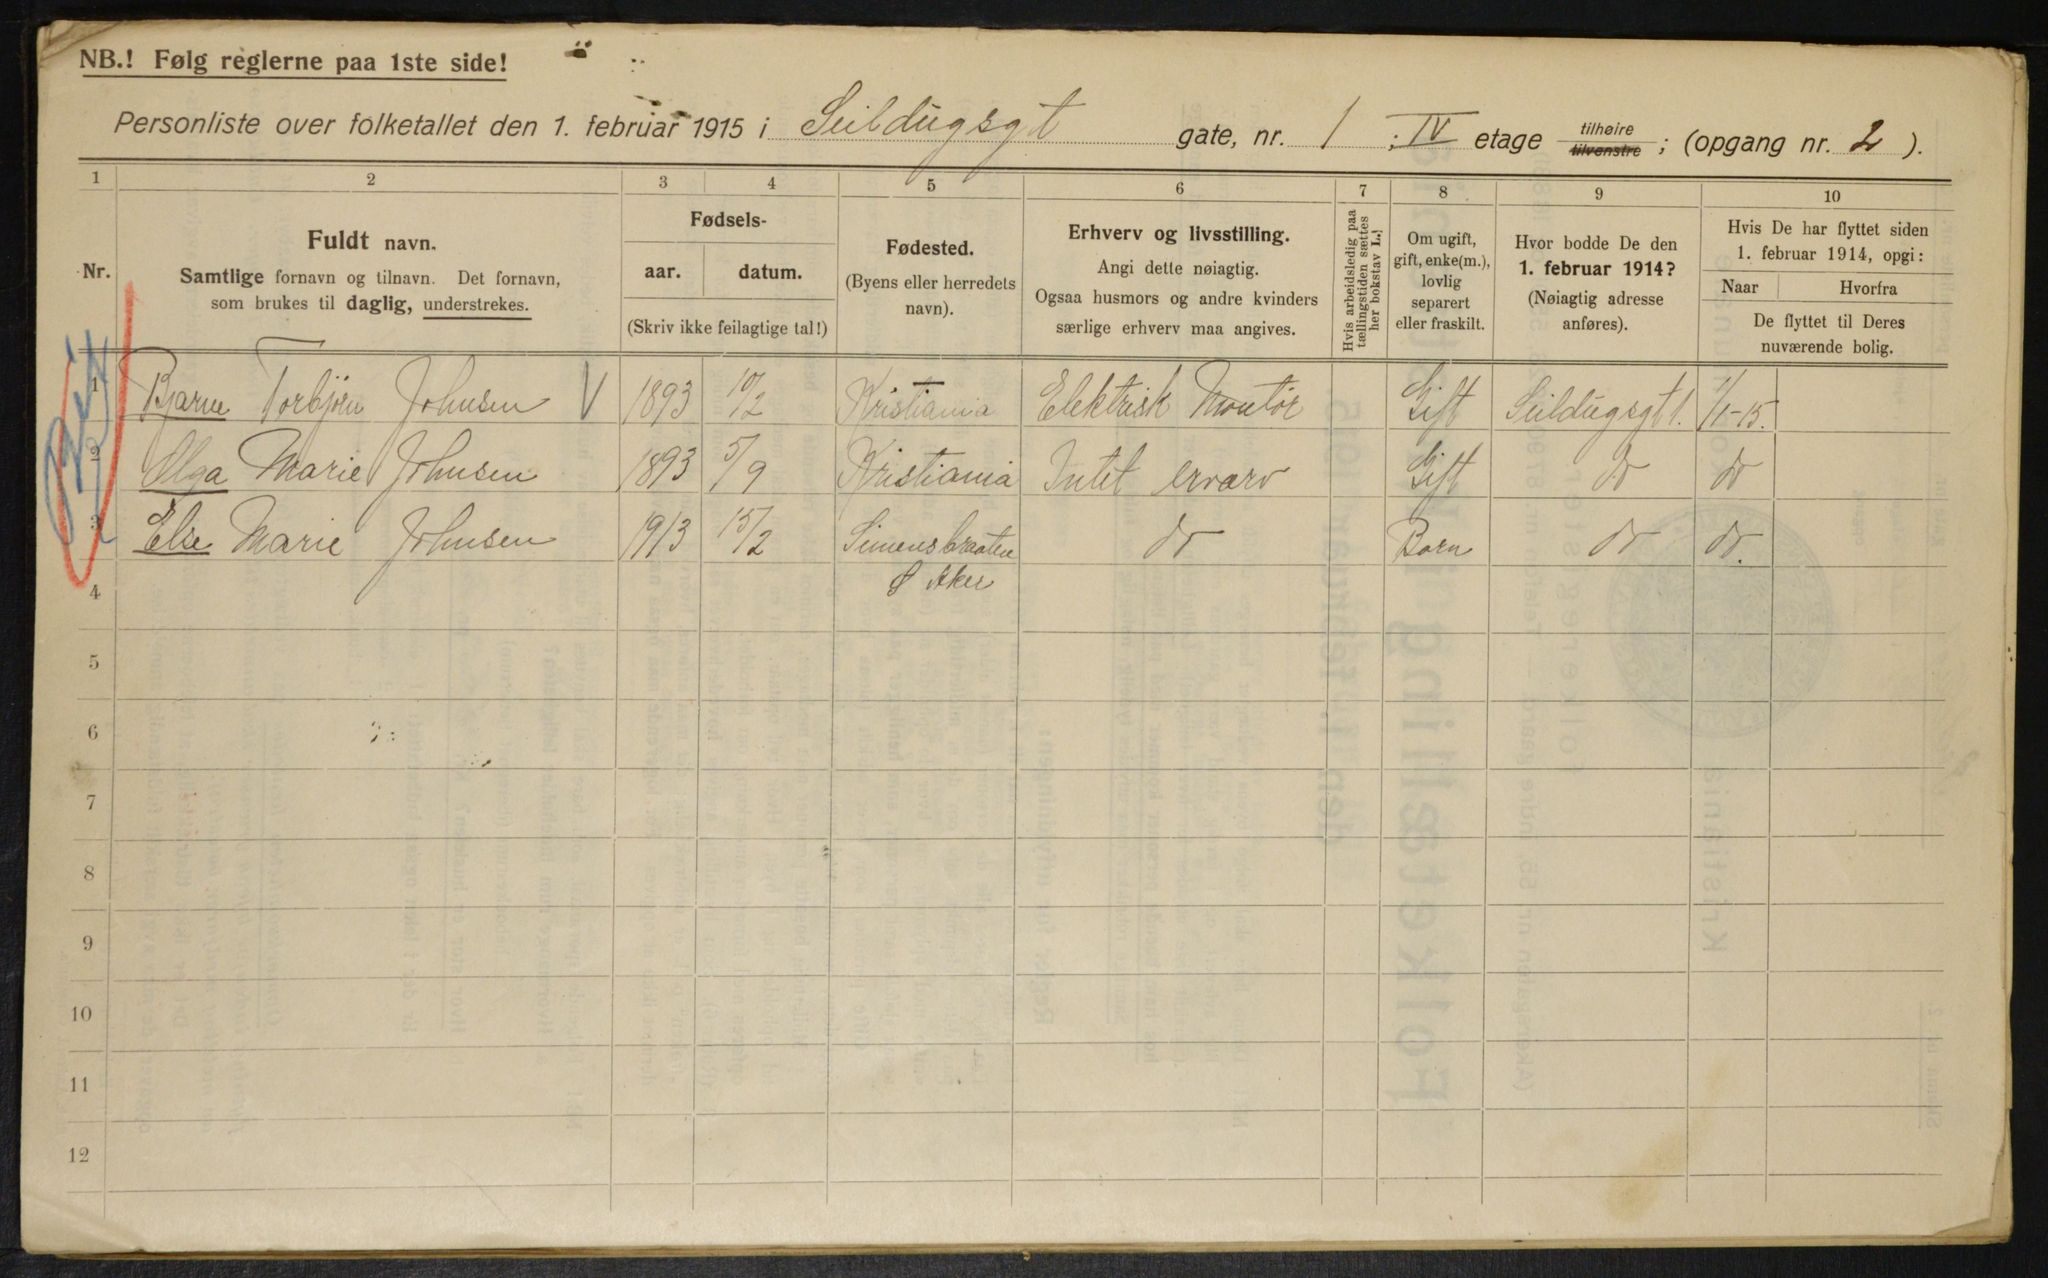 NB.! Følg reglerne paa 1ste side!
Personliste over folketallet den 1. februar 1915 i Seildugsgt gate, nr. 1 ; IV etage tilhøire tilvenstre ; (opgang nr. 2 ).
1 2 3 4 5 6 7 8 9 10
Nr.
Fuldt navn.
Samtlige fornavn og tilnavn. Det fornavn,
som brukes til daglig, understrekes.
Fødsels-
aar. datum.
(Skriv ikke feilagtige tal!)
Fødested.
(Byens eller herredets
navn).
Erhverv og livsstilling.
Angi dette nøiagtig.
Ogsaa husmors og andre kvinders
særlige erhverv maa angives.
Hvis arbeidsledig paa
tællingstiden sættes
her bokstav L.]
Om ugift,
gift, enke(m.),
lovlig
separert
eller fraskilt.
Hvor bodde De den
1. februar 1914?
(Nøiagtig adresse
anføres).
Hvis De har flyttet siden
1. februar 1914, opgi:
Naar Hvorfra
De flyttet til Deres
nuværende bolig.
1 Bjarne Torbjörn Johnsen V 1893 10/2 Kristiania Elektrisk Montör Gift Seildugsgt 1. 1/1-15.
2 Olga Marie Johnsen 1893 5/9 Kristiania Intet erværv Gift do do
3 Else Marie Johnsen 1913 15/2 Simensbraaten do Barn do do.
Ø Aker
4
5
6
7
8
9
10
11
12